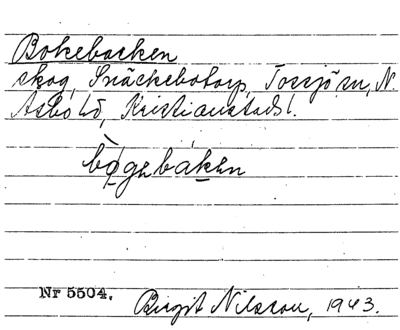 Bokebacken
skog, Snäckebotorp, Torsjö sn, N.
Asbo hd, Kristianstads l.
bøgebaken
Nr 5504.
Birgit Nilsson, 1943.